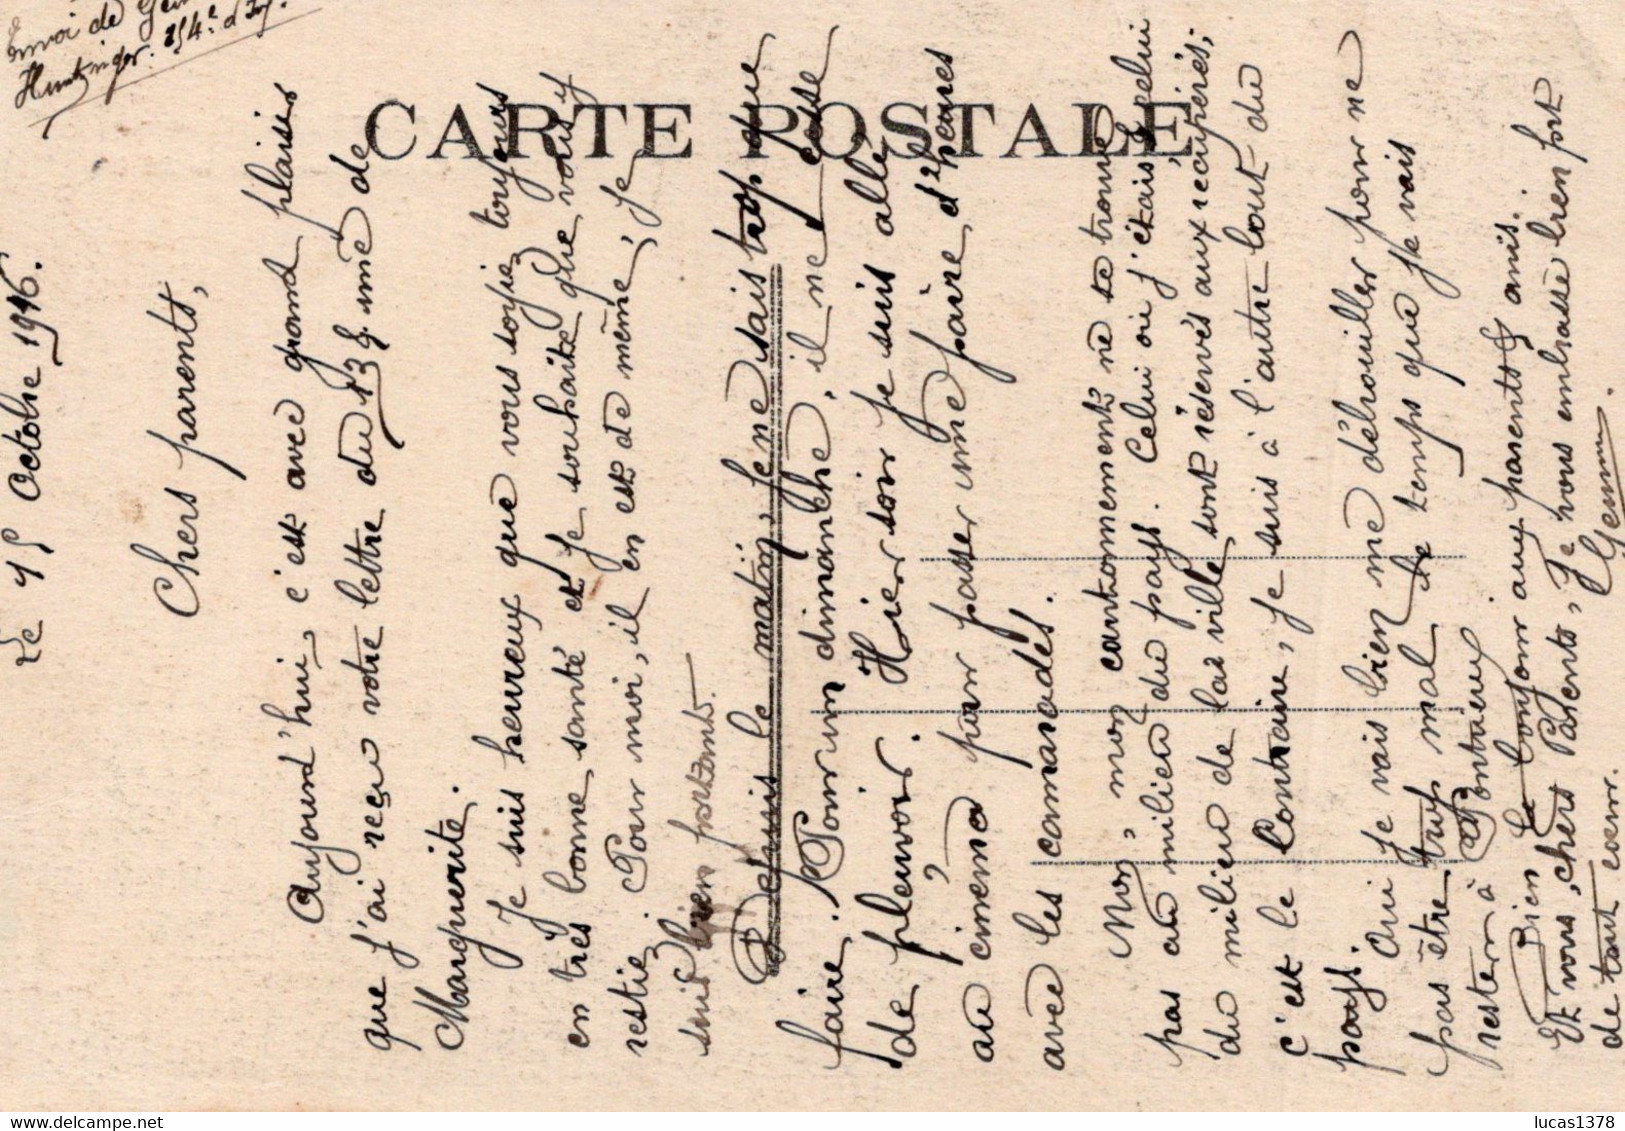 Envoi de
Huntzinger. 254e d'Inf.
CARTE POSTALE
Le 15 Octobre 1916.
Chers parents,
Aujourd'hui, c'est avec grand plaisir
que j'ai reçu votre lettre du 13 & une de
Marguerite.
Je suis heureux que vous soyiez toujours
en très bonne santé et je souhaite que vous y
restiez. Pour moi, il en est de même, je
suis bien portant.
Depuis le matin, je ne sais trop que
faire. Pour un dimanche, il ne cesse
de pleuvoir. Hier soir je suis allé
au cinéma pour passer une paire d'heures
avec les camarades.
Non, mon cantonnement ne se trouve
pas au milieu du pays. Celui où j'étais, celui
du milieu de la ville, sont réservés aux récupérés;
c'est le contraire, je suis à l'autre bout du
pays.
Oui je vais bien me débrouiller pour ne
pas être trop mal le temps que je vais
rester à Pontaieux
Bien le bonjour aux parents & amis.
Et vous, chers Parents, je vous embrasse bien fort
de tout coeur.
lucas1378